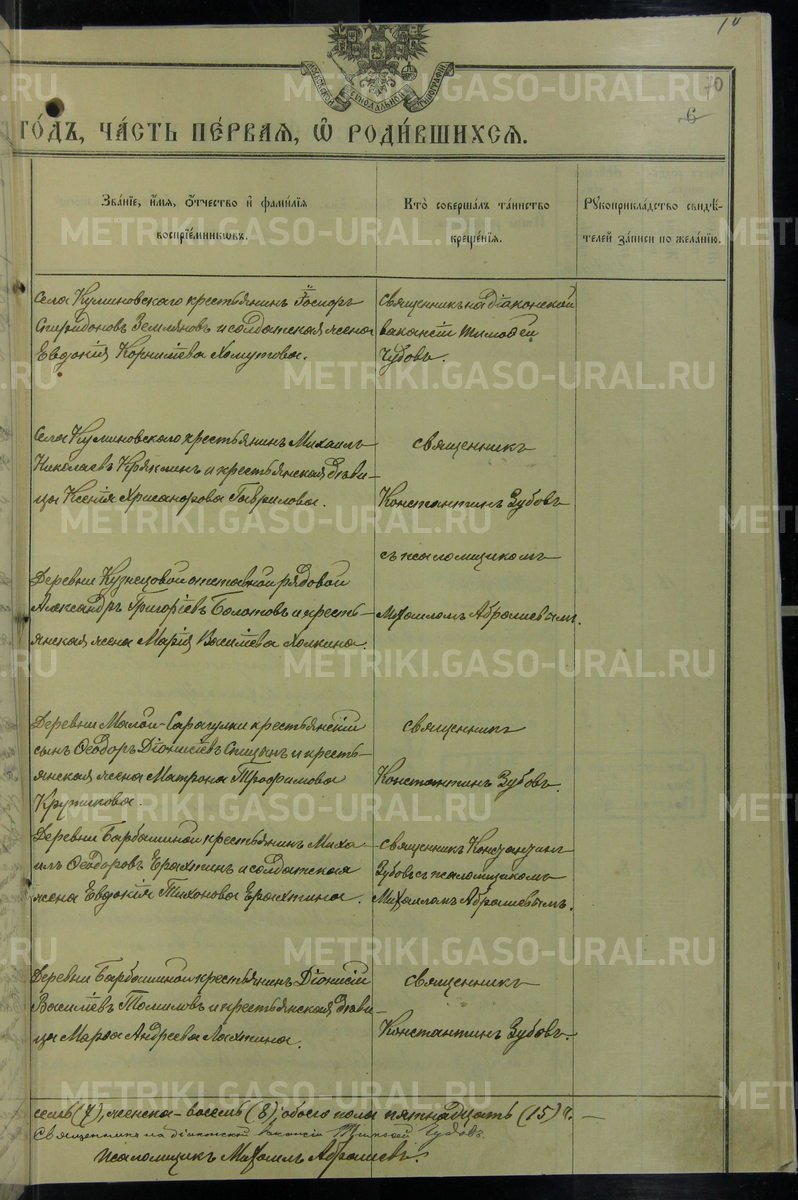 70
6
МОСКОВСКОЙ СѴНОДАЛЬНОЙ ТИПОГРАФІИ
ГО́ДЪ, ЧА́СТЬ ПЕ́РВАЯ, Ѽ РОДИ́ВШИХСѦ.
Зва́нїе, и҆́мя, ѻ҆́тчество и҆ фами́лїя
воспрїе́мникѡвъ.
Кто̀ соверша́лъ та́инство
креще́нїя.
Рꙋкоприкла́дство свидѣ́-
телей за́писи по жела́нїю.
Села Куликовскаго крестьянинъ
Спиридоновъ Земляновъ и солдатская жена
Евдокія Корнилієва Хомутова.
Священникъ на діаконской
вакансіи Тимофей
Чубовъ.
Села Куликовскаго крестьянинъ Михаилъ
Николаевъ и крестьянская дѣви-
ца Ксенія Хрисанфова Гаврилова.
Священникъ
Константинъ Зубовъ
съ псаломщикомъ
Михаиломъ Абрашевымъ.
Деревни Кузнецовой отставной рядовой
Александръ Григоріевъ Болотовъ и кресть-
янская жена Марія Василіева Холкина.
Деревни Малой-Сарагулки крестьянскій
сынъ Ѳеодоръ Діонисіевъ Спицинъ и кресть-
янская жена Матрона Трофимова
Крутикова.
Священникъ
Константинъ Зубовъ.
Деревни Барбашиной крестьянинъ Миха-
илъ Ѳеодоровъ Ерахтинъ и солдатская
жена Евдокія Тихонова Ерахтина.
Священникъ Константинъ
Зубовъ съ псаломщикомъ
Михаиломъ Абрашевымъ.
Деревни Барбашиной крестьянинъ Діонисій
Василіевъ Томиловъ и крестьянская дѣви-
ца Марѳа Андреева Лахтина.
Священникъ
Константинъ Зубовъ.
семь (7), женска-восемь (8), обоего пола пятнадцать (15) ч.
Священникъ на діаконской вакансіи Тимофей Чубовъ.
Псаломщикъ Михаилъ Абрашевъ.
METRIKI.GASO-URAL.RU